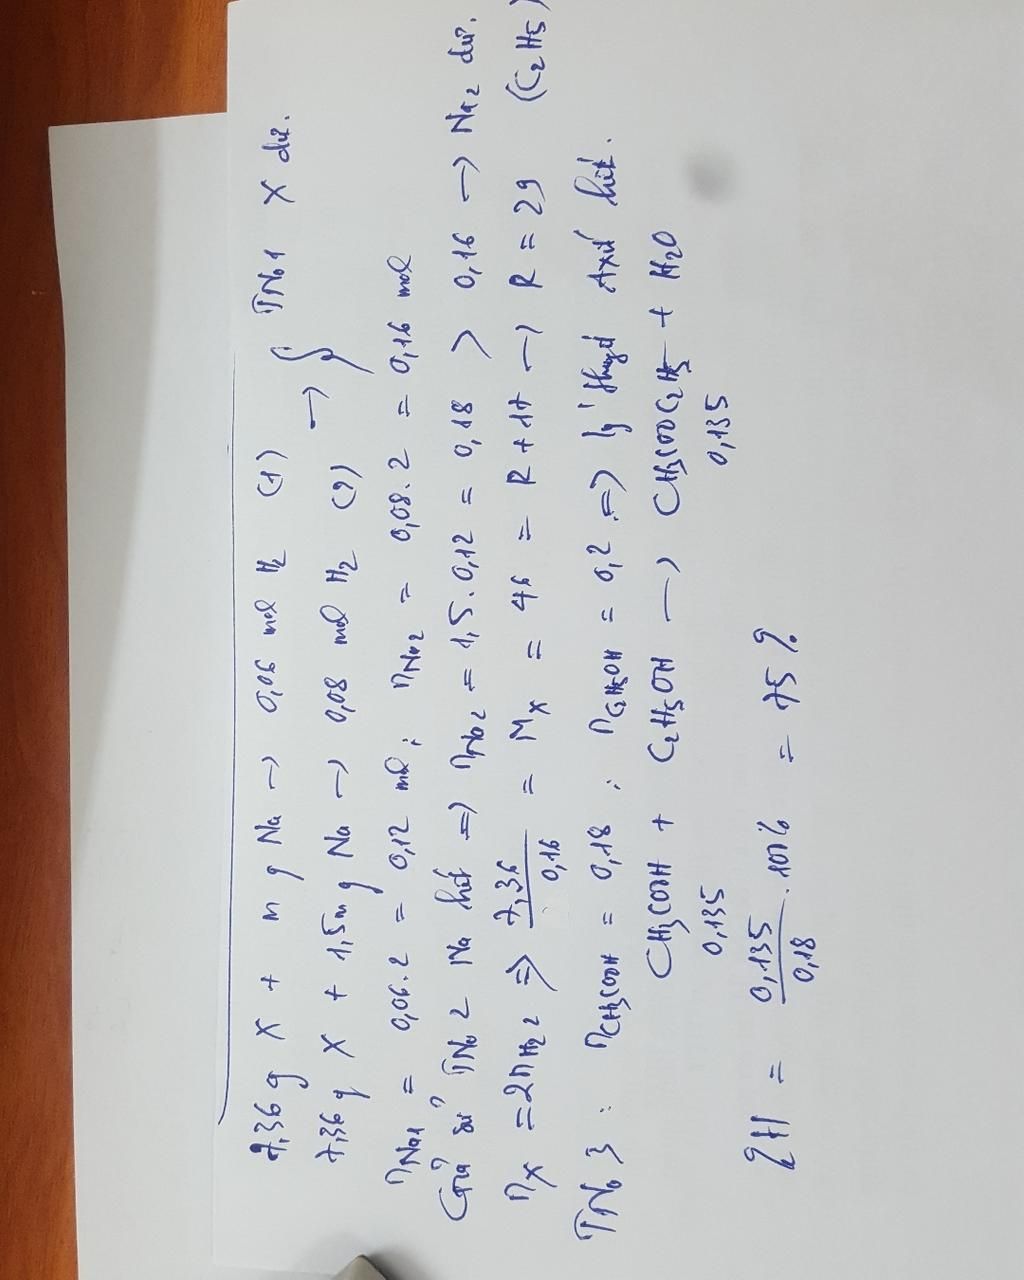 7,36 g X + m g Na → 0,06 mol H₂ (1) → { TN₀1 X dư.
7,36 g X + 1,5m g Na → 0,08 mol H₂ (2)
nNa1 = 0,06.2 = 0,12 mol ; nNa2 = 0,08.2 = 0,16 mol
Giả sử TN₀2 Na hết ⇒ nNa2 = 1,5.0,12 = 0,18 > 0,16 → Na2 dư.
nX = 2nH₂2 ⇒ 7,36/0,16 = MX = 46 = R + 17 → R = 29 (C₂H₅)
TN₀3 : nCH₃COOH = 0,18 ; nC₂H₅OH = 0,2 ⇒ lý thuyết Axit hết.
CH₃COOH + C₂H₅OH → CH₃COOC₂H₅ + H₂O
0,135 0,135
%H = 0,135/0,18 .100% = 75%